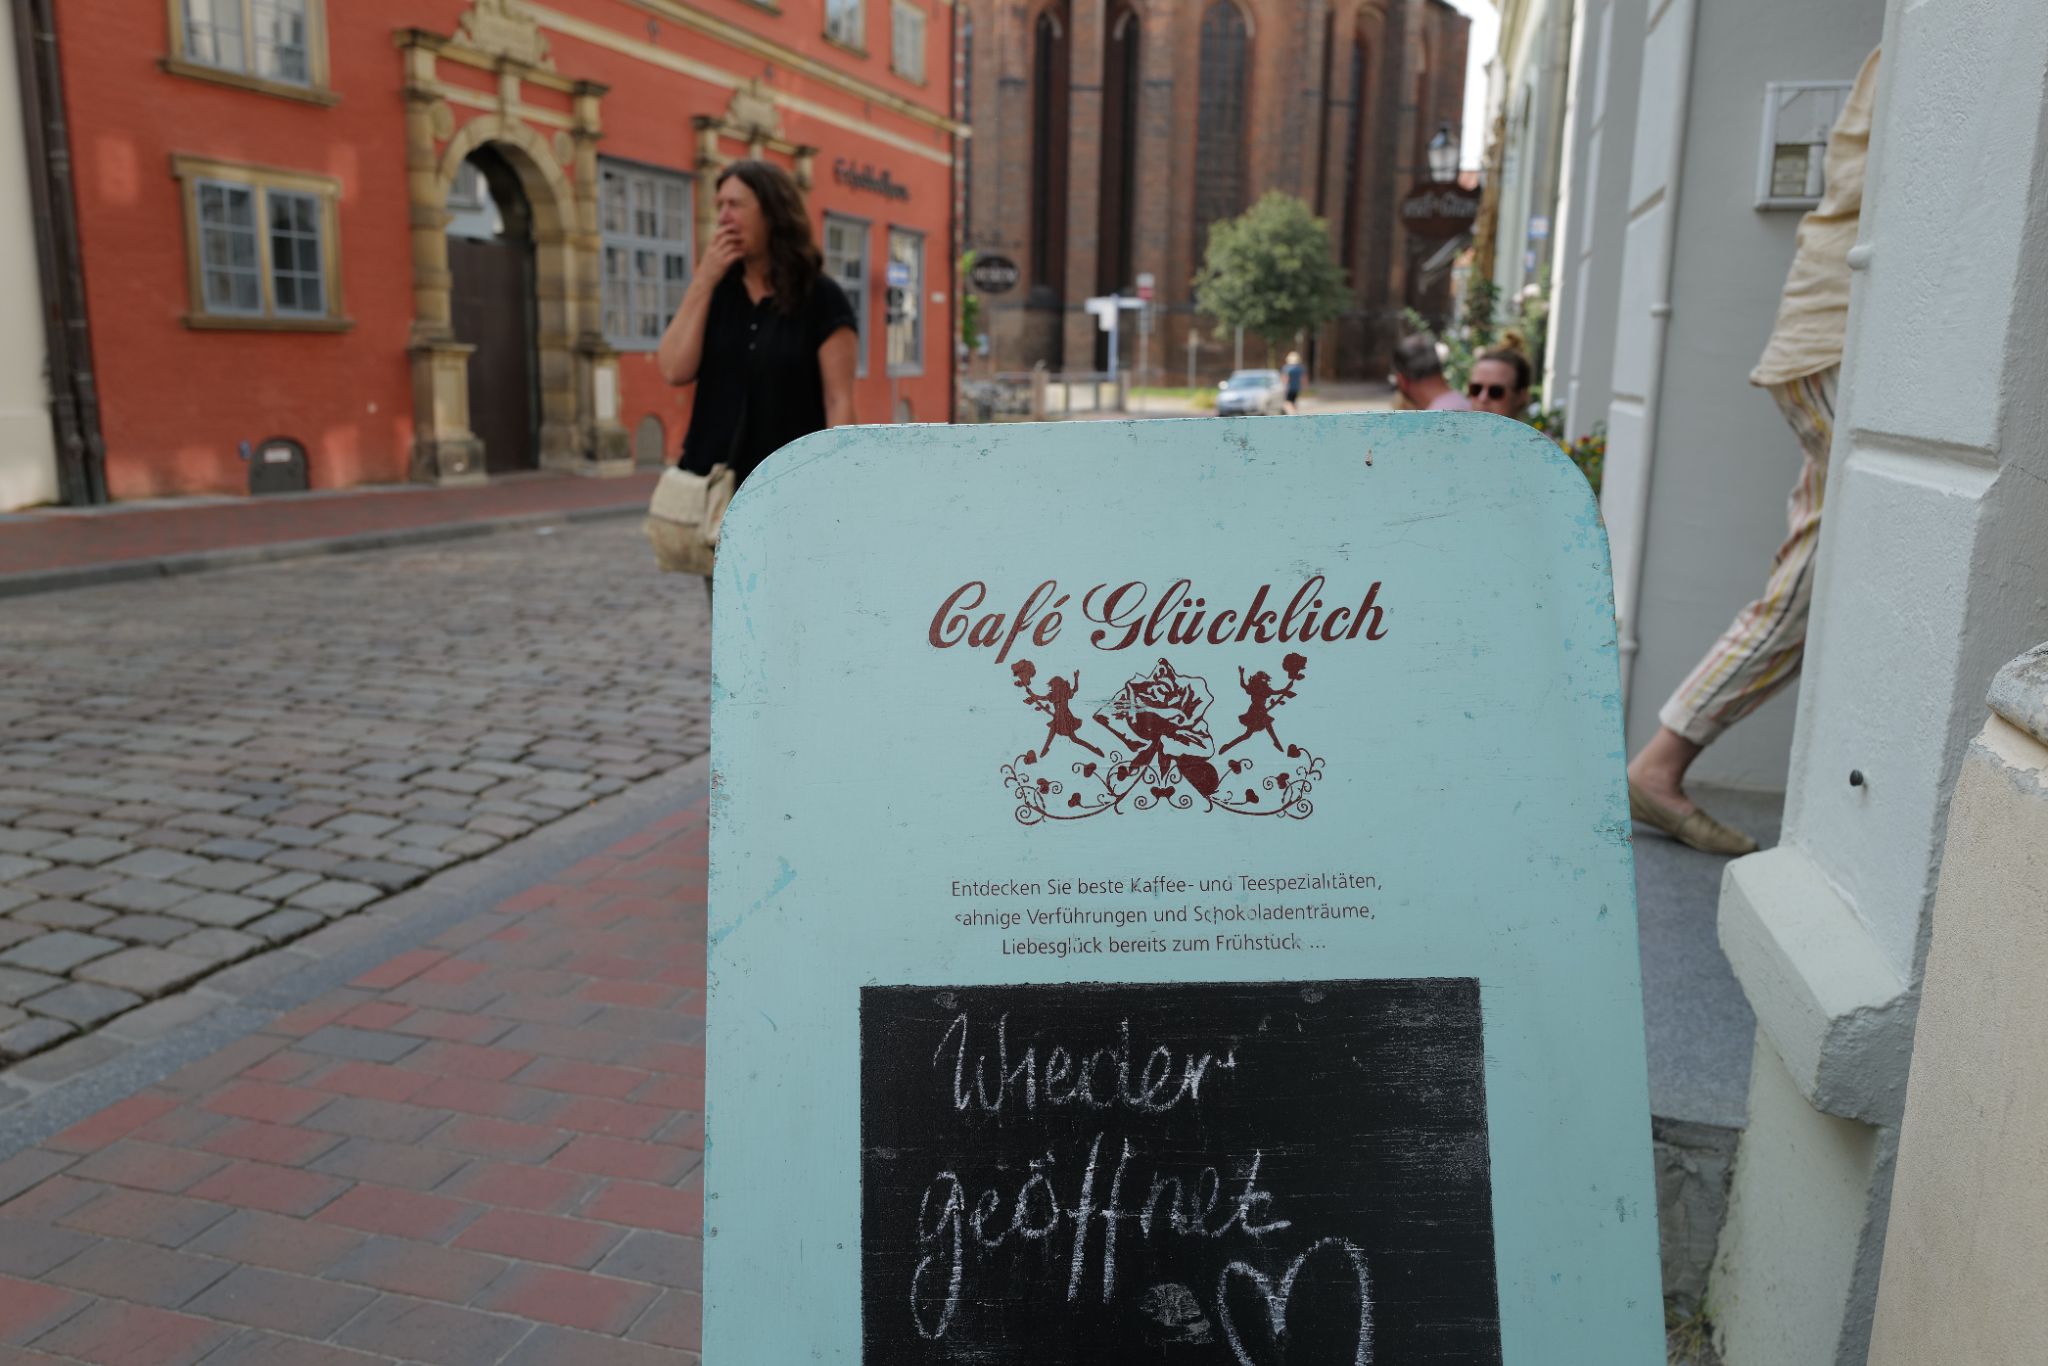 Café Glücklich
Entdecken Sie beste Kaffee- und Teespezialitäten,
sahnige Verführungen und Schokoladenträume,
Liebesglück bereits zum Frühstück ...
Wieder
geöffnet